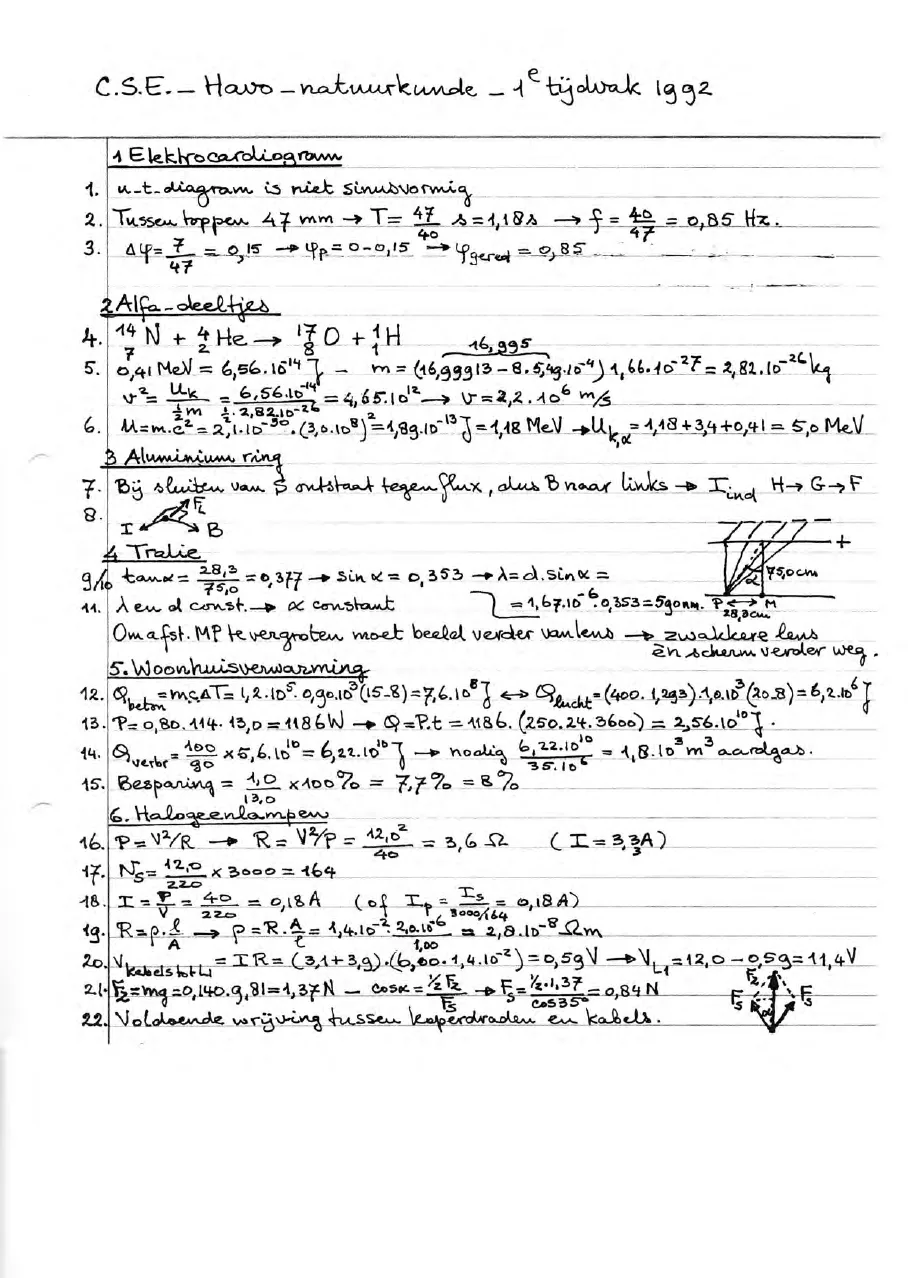 C.S.E. – Havo – natuurkunde – 1e tijdvak 1992
1 Elektrocardiogram
1. u-t-diagram is niet sinusvormig
2. Tussen toppen 47 mm → T = 47/40 s = 1,18 s → f = 40/47 = 0,85 Hz.
3. Δφ = 7/47 = 0,15 → φp = 0 - 0,15 → φgered = 0,85
2 Alfa-deeltjes
4. 14 7 N + 4 2 He → 17 8 O + 1 1 H
16,995
5. 0,41 MeV = 6,56.10^-14 J – m = (16,99913 - 8.5,49.10^-4) 1,66.10^-27 = 2,82.10^-26 kg
v² = Uk/½m = 6,56.10^-14/½.2,82.10^-26 = 4,65.10^12 → v = 2,2.10^6 m/s
6. U = m.c² = 2,1.10^-30.(3,0.10^8)² = 1,89.10^-13 J = 1,18 MeV → Uk,α = 1,18 + 3,4 + 0,41 = 5,0 MeV
3 Aluminium ring
7. Bij sluiten van S ontstaat tegenflux, dus B naar links → Iind H → G → F
8. I FL B
4 Tralie
9/10 tanα = 28,3/75,0 = 0,377 → sin α = 0,353 → λ = d.sin α =
= 1,67.10^-6.0,353 = 590 nm.
α 75,0 cm P ↔ M 28,3 cm +
11. λ en d const. → α constant
Om afst. MP te vergroten moet beeld verder van lens → zwakkere lens
èn scherm verder weg.
5. Woonhuisverwarming
12. Qbeton = m.c.ΔT = 1,2.10^5.0,90.10^3 (15-8) = 7,6.10^8 J ↔ Qlucht = (400.1,293).1,0.10^3 (20-8) = 6,2.10^6 J
13. P = 0,80.114.13,0 = 1186 W → Q = P.t = 1186.(250.24.3600) = 2,56.10^10 J.
14. Qverbr = 100/90 x 5,6.10^10 = 6,22.10^10 J → nodig 6,22.10^10/35.10^6 = 1,8.10^3 m³ aardgas.
15. Besparing = 1,0/13,0 x 100% = 7,7% = 8%
6. Halogeenlampen
16. P = V²/R → R = V²/P = 12,0²/40 = 3,6 Ω ( I = 3,3 A)
17. Ns = 12,0/220 x 3000 = 164
18. I = P/V = 40/220 = 0,18 A (of Ip = Is/3000/164 = 0,18 A)
19. R = ρ.l/A → ρ = R.A/l = 1,4.10^-2.2,0.10^-6/1,00 = 2,8.10^-8 Ωm
20. Vkabels tot L1 = IR = (3,1 + 3,9).(6,00.1,4.10^-2) = 0,59 V → VL1 = 12,0 - 0,59 = 11,4 V
21. Fz = mg = 0,140.9,81 = 1,37 N – cosα = ½Fz/Fs → Fs = ½.1,37/cos35° = 0,84 N
Fz Fs α Fs
22. Voldoende wrijving tussen koperdraden en kabels.